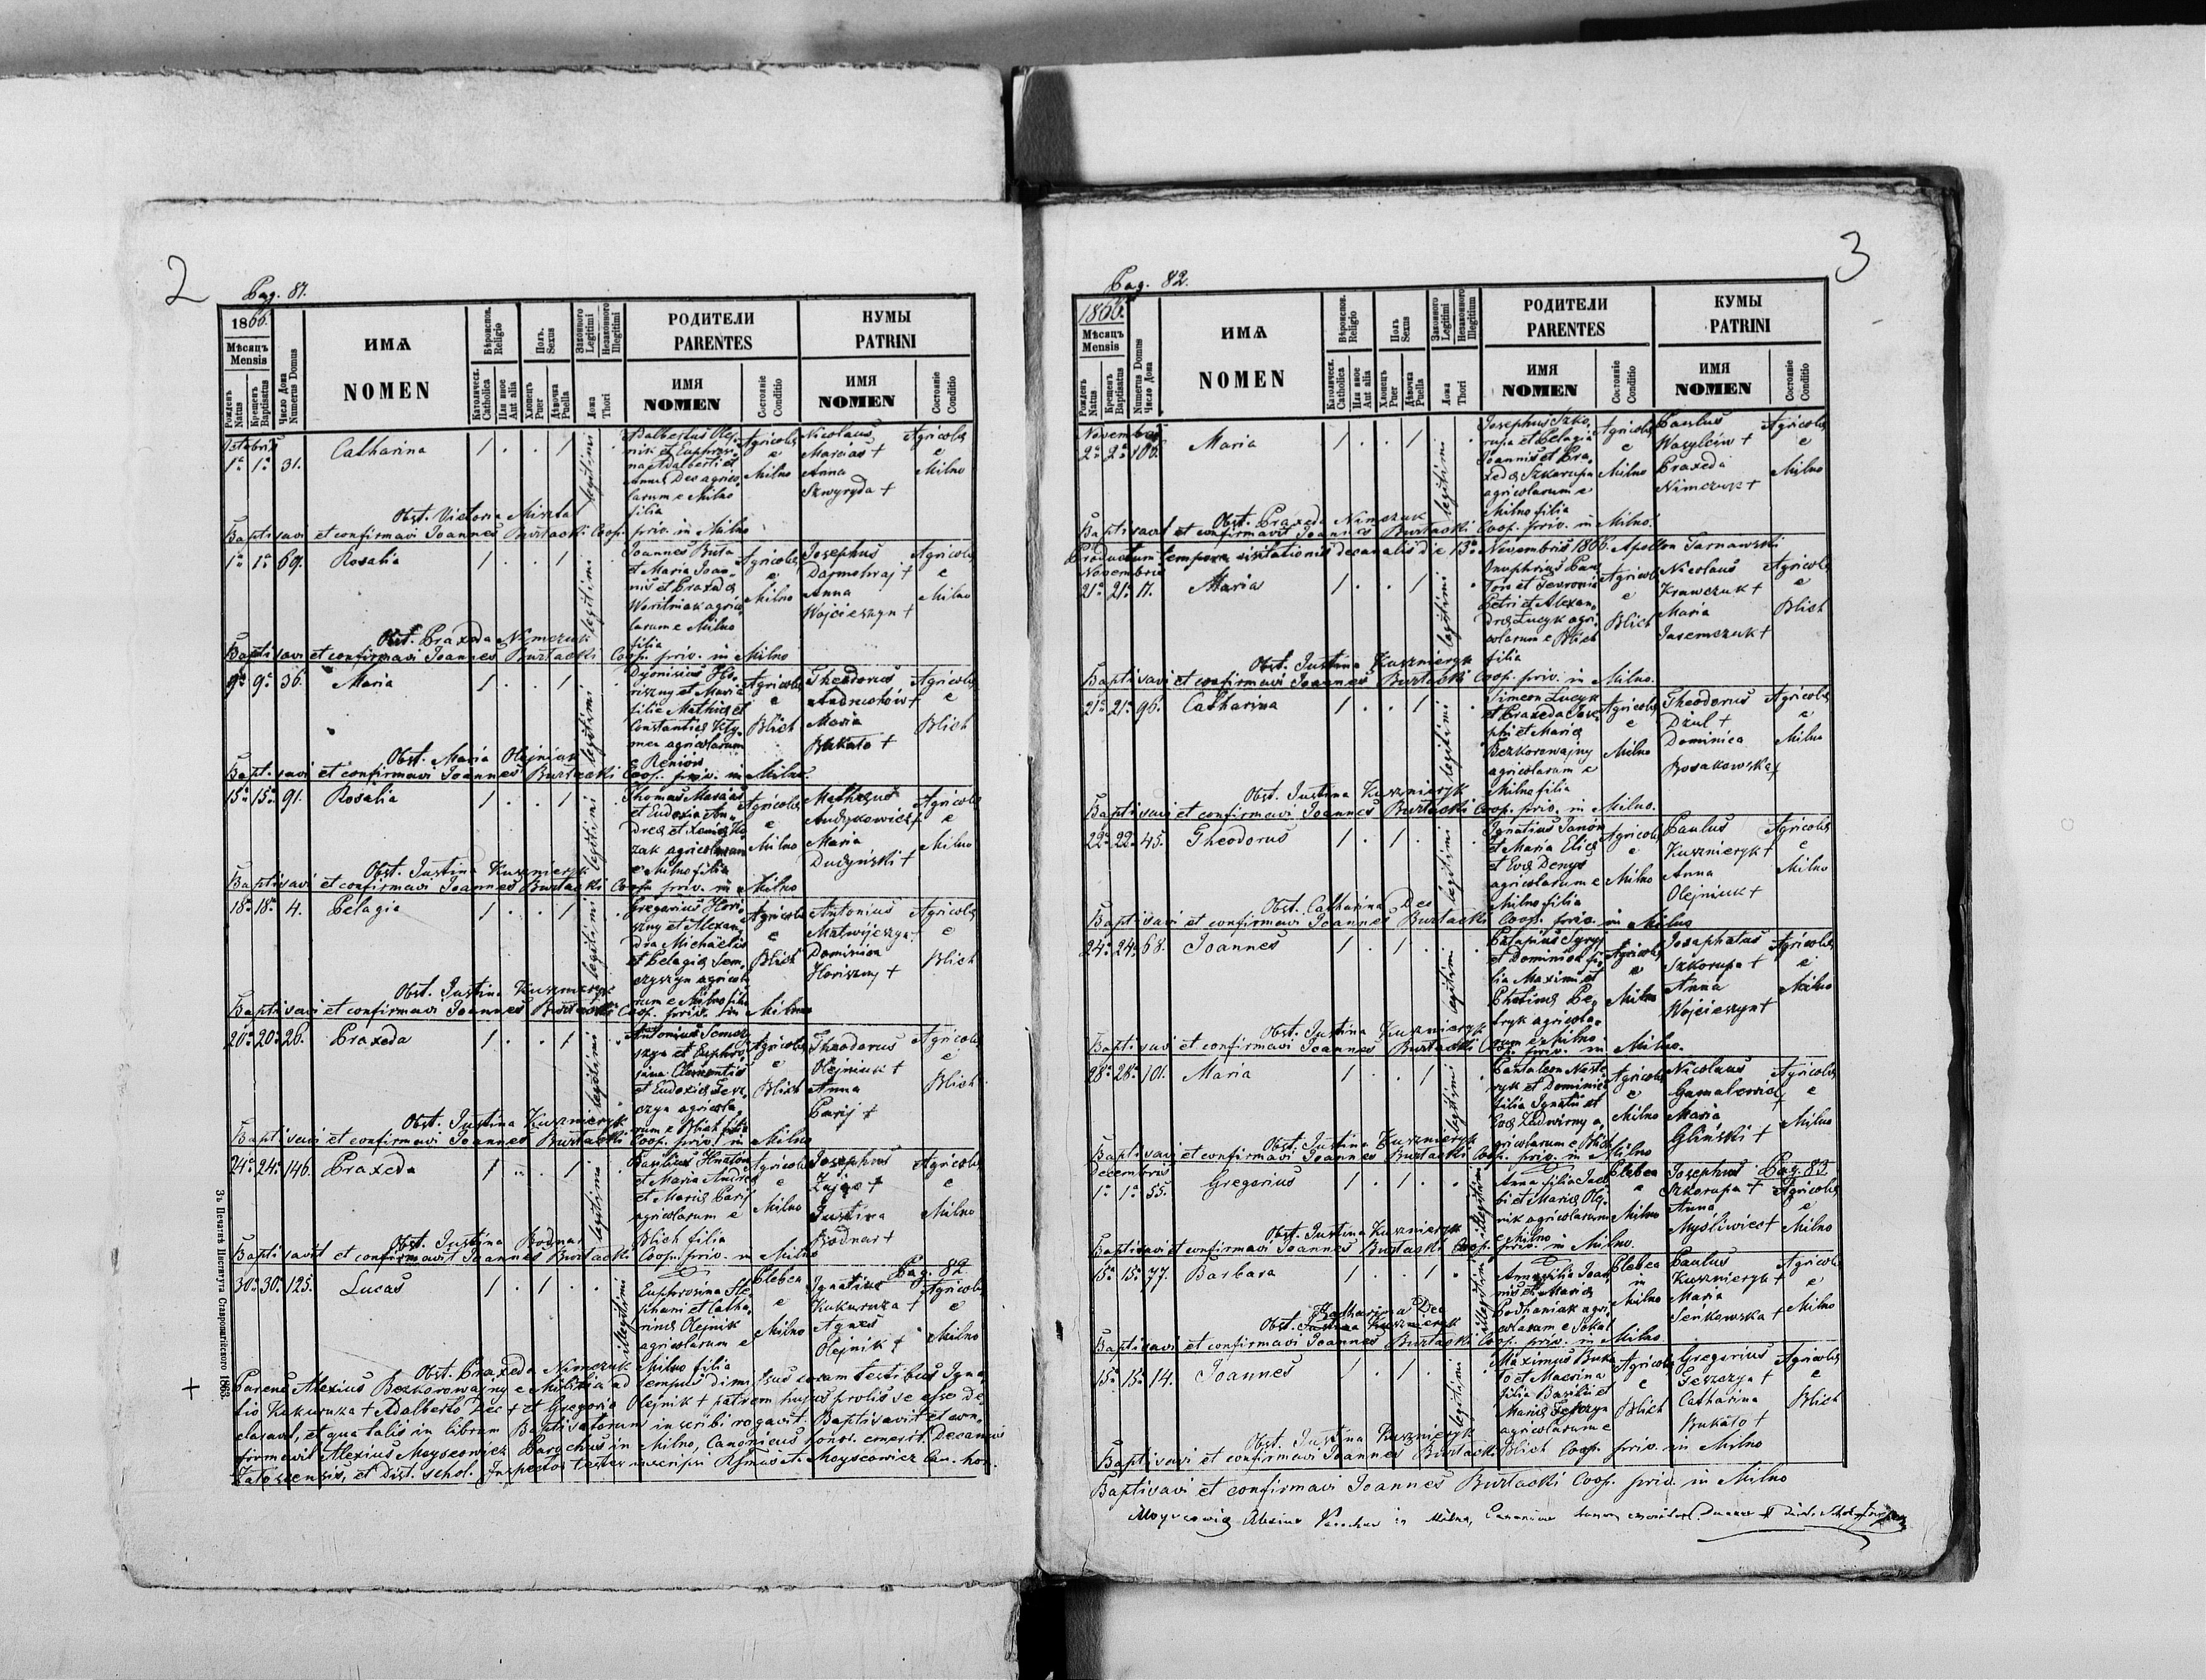 2
Pag. 81.
1866.
Мѣсяцъ
Mensis
Рожденъ
Natus
Крещенъ
Baptisatus
Число Дома
Numerus Domus
ИМѦ
NOMEN
Вѣроиспов.
Religio
Католическ.
Catholica
Или иное
Aut alia
Полъ.
Sexus
Хлопецъ
Puer
Дѣвочка
Puella
Законного
Legitimi
Незаконного
Illegitimi
Ложа
Thori
РОДИТЕЛИ
PARENTES
ИМЯ
NOMEN
Состояніе
Conditio
КУМЫ
PATRINI
ИМЯ
NOMEN
Состояніе
Conditio
Octobris
1a 1a 31. Catharina 1 . . 1 legitimi
Adalbertus Olej-
nik et Euphrosi-
na Adalberti et
Annæ Dec agrico-
larum e Milno
filia
Agricolæ
e
Milno
Nicolaus
Marcias +
Anna
Szwyryda +
Agricolæ
e
Milno
Obst. Victoria Misztal
Baptisavi et confirmavi Joannes Burtacki Coop. priv. in Milno
1a 1a 69. Rosalia 1 . . 1 legitimi
Joannes Buta
et Maria Joan-
nis et Praxedæ
agrico-
larum e Milno
filia
Agricolæ
e
Milno
Josephus
+
Anna
Wojcieszyn +
Agricolæ
e
Milno
Obst. Praxeda Nimczuk
Baptisavi et confirmavi Joannes Burtacki Coop. priv. in Milno
9a 9a 36. Maria 1 . . 1 legitimi
Dyonisius Ho-
riszny et Maria
filia Mathiæ et
Constantiæ
agricolarum
e Reniow
Agricolæ
e
Blich
Theodorus
Andruchów +
Maria
Bukato +
Agricolæ
e
Blich
Obst. Maria Olejniak
Baptisavi et confirmavi Joannes Burtacki Coop. priv. in Milno.
15a 15a 91. Rosalia 1 . . 1 legitimi
Thomas Marcias
et Eudoxia An-
dreæ et Xeniæ Ko-
zak agricolarum
e Milno filia
Agricolæ
e
Milno
Mathæus
Andrykowicz +
Maria
Dudyński +
Agricolæ
e
Milno
Obst. Justina Kusznieryk
Baptisavi et confirmavi Joannes Burtacki Coop. priv. in Milno
18a 18a 4. Pelagia 1 . . 1 legitimi
Gregorius Hori-
szny et Alexan-
dra Michaëlis
et Pelagiæ Sem-
czyszyn agricola-
rum e Milno filia
Agricolæ
e
Blich
Antonius
Matwijczyn
Dominica
Horiszny +
Agricolæ
e
Blich
Obst. Justina Kusznieryk
Baptisavi et confirmavi Joannes Burtacki Coop. priv. in Milno
20a 20a 26. Praxeda 1 . . 1 legitimi
Antonius Semcz-
szyn et Euphro-
sina Clementis
et Eudoxiæ Fesz-
czyn agricola-
rum e Blich filia
Agricolæ
e
Blich
Theodorus
Olejniuk +
Anna
Parij +
Agricolæ
e
Blich
Obst. Justina Kusznieryk
Baptisavi et confirmavi Joannes Burtacki Coop. priv. in Milno
24a 24a 146. Praxeda 1 . . 1 legitimi
Basilius Hnatów
et Maria Andreæ
et Mariæ Parij
agricolarum e
Blich filia
Agricolæ
e
Milno
Josephus
Zając +
Justina
Bodnar +
Agricolæ
e
Milno
Obst. Justina Bodnar
Baptisavit et confirmavit Joannes Burtacki Coop. priv. in Milno
Pag. 82
30a 30a 125. Lucas 1 . 1 . illegitimi
Euphrosina Ste-
phani et Catha-
rinæ Olejnik
agricolarum e
Milno filia
Plebea
e
Milno
Ignatius
Kukuruza +
Agnes
Olejnik +
Agricolæ
e
Milno
Obst. Praxeda Nimczuk
Parens Alexius Bezkorowajny e Militia ad tempus dimissus coram testibus Igna-
tio Kukuruza + Adalberto Dec + et Gregorio Olejnik + patrem hujus prolis se esse de-
claravit, et qua talis in librum Baptisatorum inscribi rogavit. Baptisavit et con-
firmavit Alexius Moyseowicz Parochus in Milno, Canonicus honor. emerit. Decanus
Załoscensis, et Dist. schol. Inspector testes inscripsi Moyseowicz Can. hon.
+
Зъ Печатнѣ Института Ставропигіского 1863.
3
Pag. 82.
1866.
Мѣсяцъ
Mensis
Рожденъ
Natus
Крещенъ
Baptisatus
Numerus Domus
Число Дома
ИМѦ
NOMEN
Вѣроиспов.
Religio
Католическ.
Catholica
Или иное
Aut alia
Полъ
Sexus
Хлопецъ
Puer
Дѣвочка
Puella
Законного
Legitimi
Незаконного
Illegitimum
Ложа
Thori
РОДИТЕЛИ
PARENTES
ИМЯ
NOMEN
Состояніе
Conditio
КУМЫ
PATRINI
ИМЯ
NOMEN
Состояніе
Conditio
Novembris
2a 2a 106. Maria 1 . . 1 legitimi
Josephus Szko-
rupa et Pelagia
Joannis et Pra-
xedæ Szkarupa
agricolarum e
Milno filia
Agricolæ
e
Milno
Paulus
Wasylciw +
Praxeda
Nimczuk +
Agricolæ
e
Milno
Obst. Praxeda Nimczuk
Baptisavit et confirmavit Joannes Burtacki Coop. priv. in Milno.
Productum tempore visitationis decanalis die 13a Novembris 1866. Apollon Tarnawski
Novembris
21a 21a 17. Maria 1 . . 1 legitimi
Onuphrius Pan-
Petri et Alexan-
dræ Łucyk agri-
colarum e Blich
filia
Agricolæ
e
Blich
Nicolaus
Krawczuk +
Maria
Jaremczuk +
Agricolæ
Blich
Obst. Justina Kusznieryk
Baptisavi et confirmavi Joannes Burtacki Coop. priv. in Milno.
21a 21a 96. Catharina 1 . . 1 legitimi
Simeon Łucyk
et Praxeda Jose-
phi et Mariæ
Bezkorowajny
agricolarum e
Milno filia
Agricolæ
e
Milno
Theodorus
Dżul +
Dominica
Rosakowska +
Agricolæ
e
Milno
Obst. Justina Kusznieryk
Baptisavi et confirmavi Joannes Burtacki Coop. priv. in Milno.
22a 22a 45. Theodorus 1 . 1 . legitimi
Ignatius Janów
et Maria Eliæ
et Evæ Denys
agricolarum e
Milno filia
Agricolæ
e
Milno
Paulus
Kusznieryk +
Anna
Olejniuk +
Agricolæ
e
Milno
Obst. Catharina Dec
Baptisavi et confirmavi Joannes Burtacki Coop. priv. in Milno
24a 24a 68. Joannes 1 . 1 . legitimi
et Dominica fi-
lia Maximi et
Photinæ Pe-
tryk agricola-
rum e Milno
Agricolæ
e
Milno
Josaphatus
Szkorupa +
Anna
Wojcieszyn +
Agricolæ
e
Milno
Obst. Justina Kusznieryk
Baptisavi et confirmavi Joannes Burtacki Coop. priv. in Milno.
28a 28a 101. Maria 1 . . 1 legitimi
Pantaleon Neste-
ryk et Dominica
filia Ignatii et
Evæ Zadwirny a-
gricolarum e Blich
Agricolæ
e
Milno
Nicolaus
Gamalewicz +
Maria
Gliński +
Agricolæ
e
Milno
Obst. Justina Kusznieryk
Baptisavi et confirmavi Joannes Burtacki Coop. priv. in Milno
Pag. 83
Decembris
1a 1a 55. Gregorius 1 . 1 . illegitimi
Anna filia Jaco-
bi et Mariæ Olej-
nik agricolarum
e Milno
Plebea
e
Milno
Josephus
Szkorupa +
Anna
Mysliwiec +
Agricolæ
e
Milno
Obst. Justina Kusznieryk
Baptisavi et confirmavi Joannes Burtacki Coop. priv. in Milno.
15a 15a 77. Barbara 1 . . 1 illegitimi
Anna filia Joan-
nis et Mariæ
Podhaniak agri-
colarum e Sokal
Plebea
in
Milno
Paulus
Kusznieryk +
Maria
Seńkowska +
Agricolæ
e
Milno
Catharina Dec
Obst. Justina Kusznieryk
Baptisavi et confirmavi Joannes Burtacki Coop. priv. in Milno
15a 15a 14. Joannes 1 . 1 . legitimi
Maximus Buka-
to et Macrina
filia Basilii et
Mariæ Feszczyn
agricolarum e
Blich
Agricolæ
e
Blich
Gregorius
Feszczyn +
Catharina
Bukato +
Agricolæ
e
Blich
Obst. Justina Kusznieryk
Baptisavi et confirmavi Joannes Burtacki Coop. priv. in Milno
Baptisavi et confirmavi Joannes Burtacki Coop. priv. in Milno
Moyseowicz Alexius Parochus in Milno, Canonicus honor. emerit.